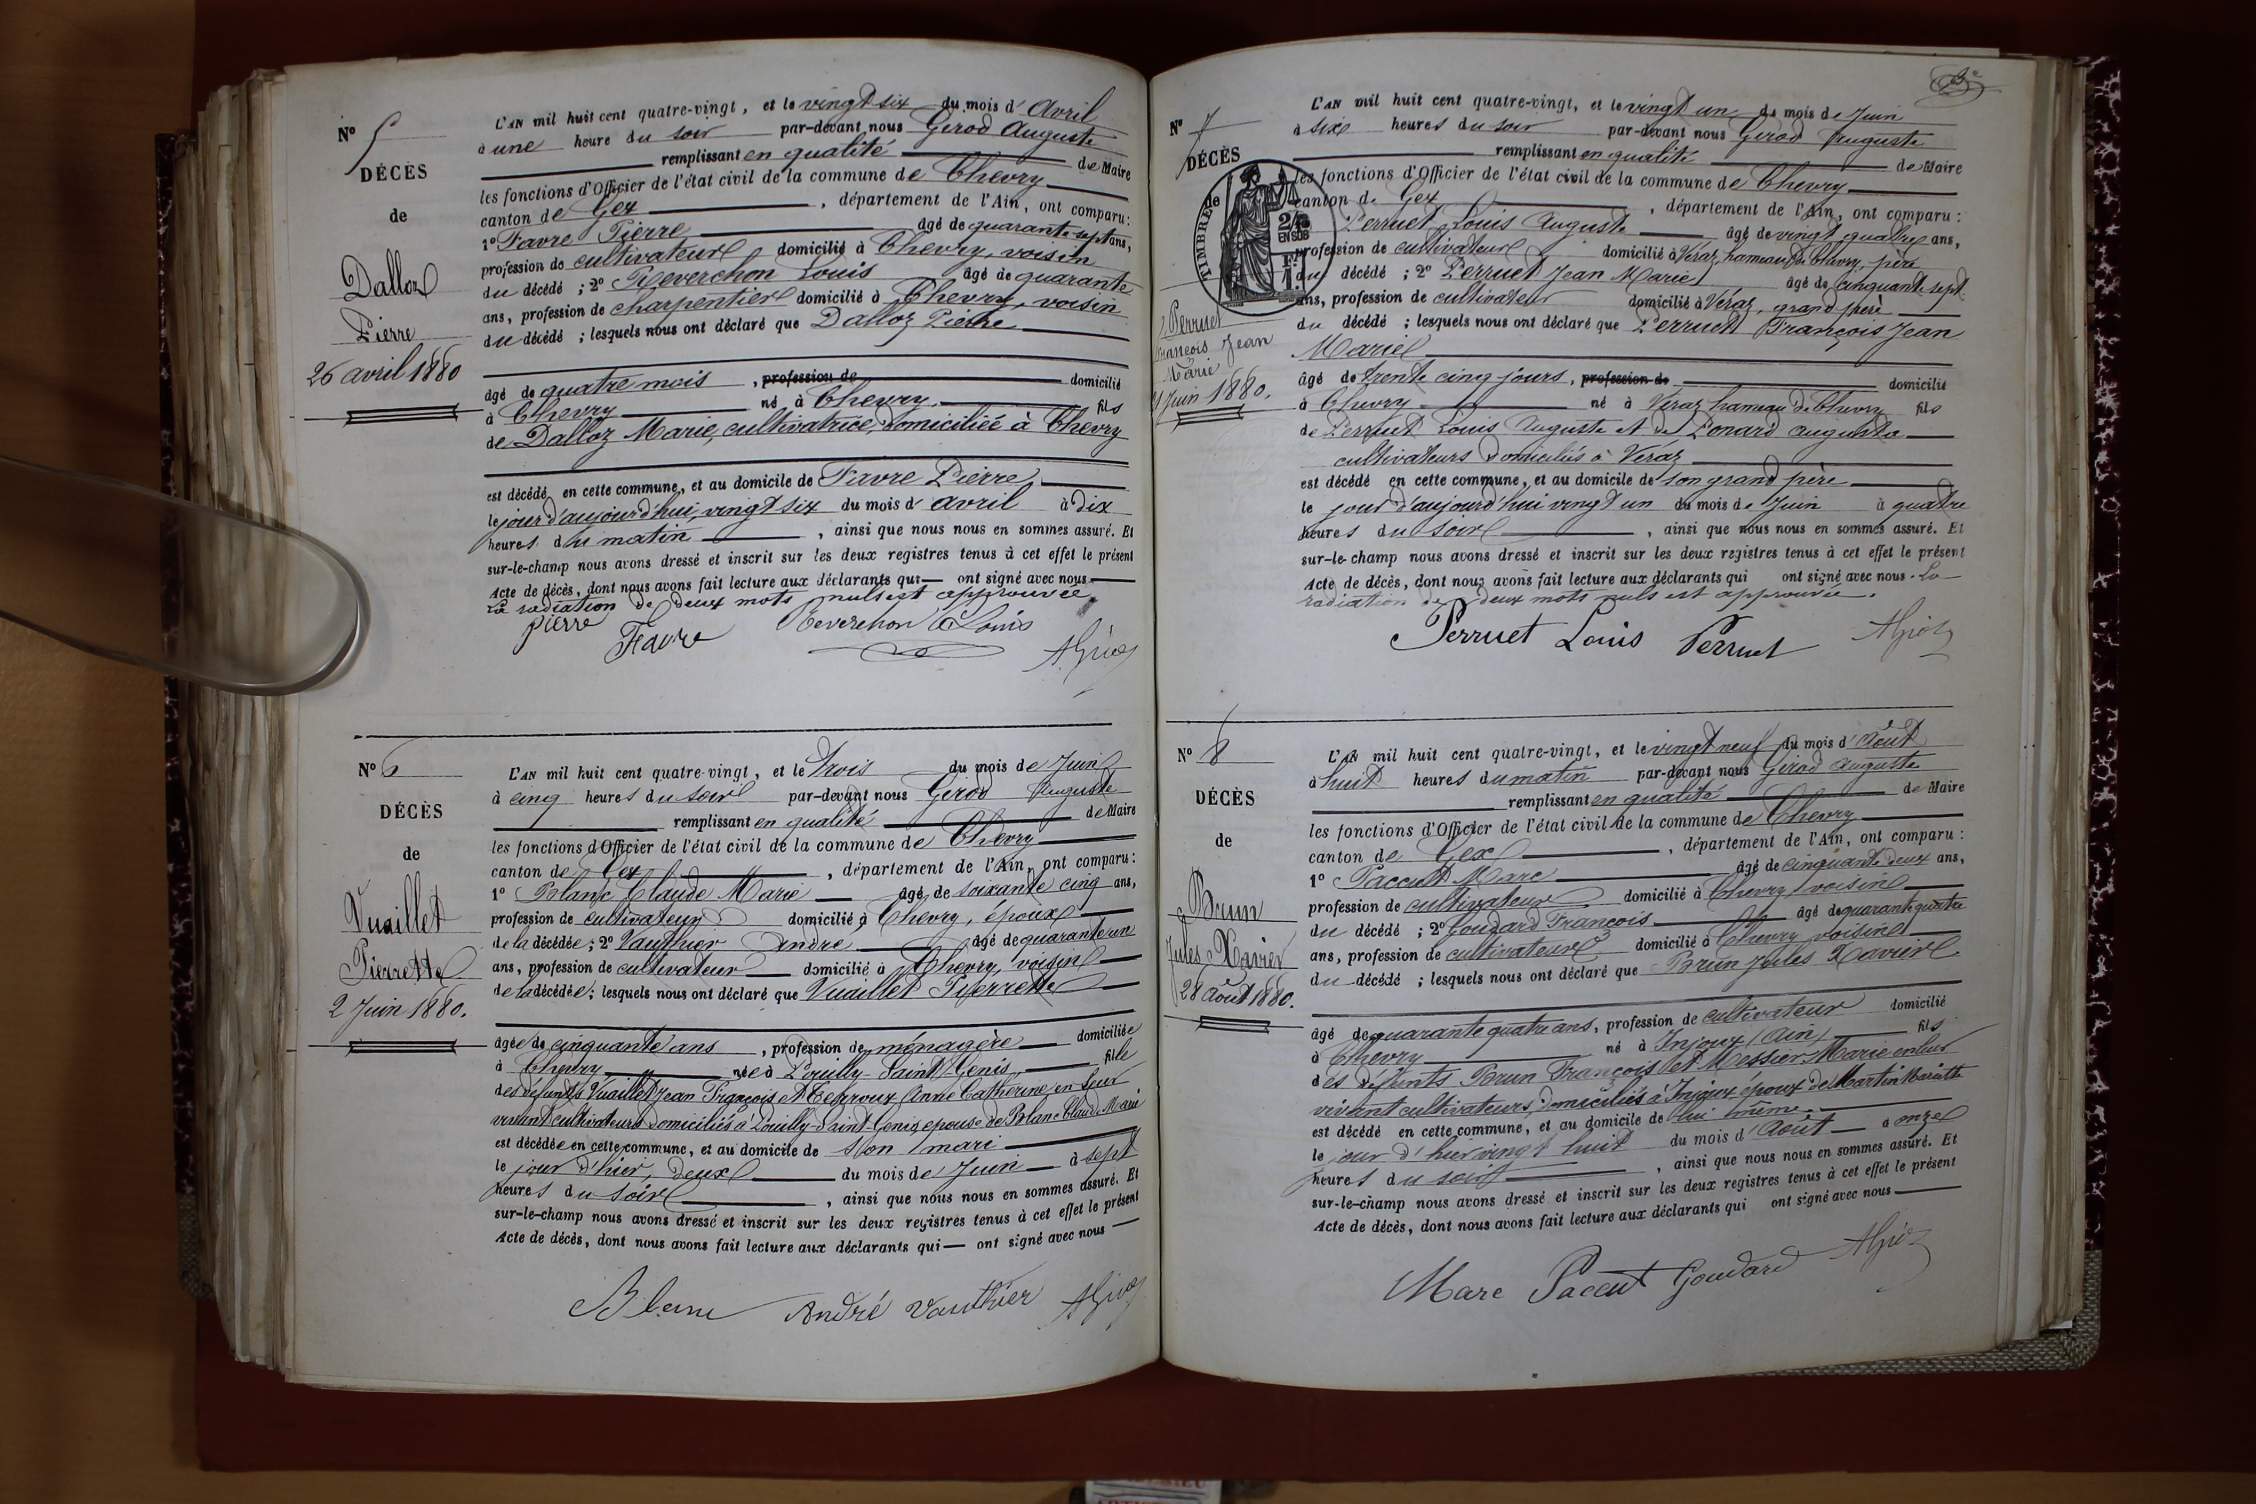 N° 5
DÉCÈS
de
Dalloz
Pierre
26 avril 1880
L'AN mil huit cent quatre-vingt, et le vingt six du mois d'Avril
à une heure du soir par-devant nous Gerod Auguste
remplissant en qualité de Maire
les fonctions d'Officier de l'état civil de la commune de Chevry
canton de Gex, département de l'Ain, ont comparu :
1° Favre Pierre âgé de quarante sept ans,
profession de cultivateur domicilié à Chevry, voisin
du décédé ; 2° Reverchon Louis âgé de quarante
ans, profession de charpentier domicilié à Chevry, voisin
du décédé ; lesquels nous ont déclaré que Dalloz Pierre
âgé de quatre mois, profession de domicilié
à Chevry né à Chevry, fils
de Dalloz Marie, cultivatrice, domiciliée à Chevry
est décédé en cette commune, et au domicile de Favre Pierre,
le jour d'aujourd'hui, vingt six du mois d'avril à dix
heures du matin, ainsi que nous nous en sommes assuré. Et
sur-le-champ nous avons dressé et inscrit sur les deux registres tenus à cet effet le présent
Acte de décès, dont nous avons fait lecture aux déclarants qui ont signé avec nous
La radiation de deux mots nuls est approuvée
pierre Favre Reverchon Louis
N° 6
DÉCÈS
de
Vuaillet
Pierrette
2 Juin 1880.
L'AN mil huit cent quatre-vingt, et le trois du mois de Juin
à cinq heures du soir par-devant nous Gerod Auguste
remplissant en qualité de Maire
les fonctions d'Officier de l'état civil de la commune de Chevry
canton de Gex, département de l'Ain, ont comparu :
1° Blanc Claude Marie âgé de soixante cinq ans,
profession de cultivateur domicilié à Chevry, époux
de la décédée ; 2° Vauthier André âgé de quarante un
ans, profession de cultivateur domicilié à Chevry, voisin
de la décédée ; lesquels nous ont déclaré que Vuaillet Pierrette
âgée de cinquante ans, profession de ménagère domiciliée
à Chevry, née à Pouilly-Saint-Genis, fille
des défunts Vuaillet Jean François et Terroux Anne Catherine en leur
vivant cultivateurs domiciliés à Pouilly-Saint-Genis, épouse de Blanc Claude Marie
est décédée en cette commune, et au domicile de son mari
le jour d'hier, deux du mois de Juin à sept
heures du soir, ainsi que nous nous en sommes assuré. Et
sur-le-champ nous avons dressé et inscrit sur les deux registres tenus à cet effet le présent
Acte de décès, dont nous avons fait lecture aux déclarants qui ont signé avec nous
Blanc André Vauthier
N° 7
DÉCÈS
de
TIMBRE
2/10
EN SUS
1 F.
Perruet
François Jean
Marie
21 Juin 1880.
L'AN mil huit cent quatre-vingt, et le vingt un du mois de Juin
à six heures du soir par-devant nous Gerod Auguste
remplissant en qualité de Maire
les fonctions d'Officier de l'état civil de la commune de Chevry
canton de Gex, département de l'Ain, ont comparu :
Perruet Louis Auguste âgé de vingt quatre ans,
profession de cultivateur domicilié à Véraz, hameau de Chevry, père
du décédé ; 2° Perruet Jean Marie âgé de cinquante sept
ans, profession de cultivateur domicilié à Véraz, grand père
du décédé ; lesquels nous ont déclaré que Perruet François Jean
Marie
âgé de trente cinq jours, profession de domicilié
à Chevry né à Véraz hameau de Chevry fils
de Perruet Louis Auguste et de Ponard Augusta
cultivateurs domiciliés à Véraz
est décédé en cette commune, et au domicile de son grand père
le jour d'aujourd'hui vingt un du mois de Juin à quatre
heures du soir, ainsi que nous nous en sommes assuré. Et
sur-le-champ nous avons dressé et inscrit sur les deux registres tenus à cet effet le présent
Acte de décès, dont nous avons fait lecture aux déclarants qui ont signé avec nous. La
radiation de deux mots nuls est approuvée.
Perruet Louis Perruet
N° 8
DÉCÈS
de
Brun
Jules Xavier
28 Août 1880.
L'AN mil huit cent quatre-vingt, et le vingt neuf du mois d'Août
à huit heures du matin par-devant nous Gerod Auguste
remplissant en qualité de Maire
les fonctions d'Officier de l'état civil de la commune de Chevry
canton de Gex, département de l'Ain, ont comparu :
1° Paccut Marc âgé de cinquante deux ans,
profession de cultivateur domicilié à Chevry, voisin
du décédé ; 2° Goudard François âgé de quarante quatre
ans, profession de cultivateur domicilié à Chevry voisin
du décédé ; lesquels nous ont déclaré que Brun Jules Xavier
âgé de quarante quatre ans, profession de cultivateur domicilié
à Chevry né à Injoux (Ain) fils
des défunts Brun François et Messier Marie en leur
vivant cultivateurs, domiciliés à Injoux époux de Martin Mariette
est décédé en cette commune, et au domicile de lui même.
le jour d'hier vingt huit du mois d'Août à onze
heures du soir, ainsi que nous nous en sommes assuré. Et
sur-le-champ nous avons dressé et inscrit sur les deux registres tenus à cet effet le présent
Acte de décès, dont nous avons fait lecture aux déclarants qui ont signé avec nous
Marc Paccut Goudard